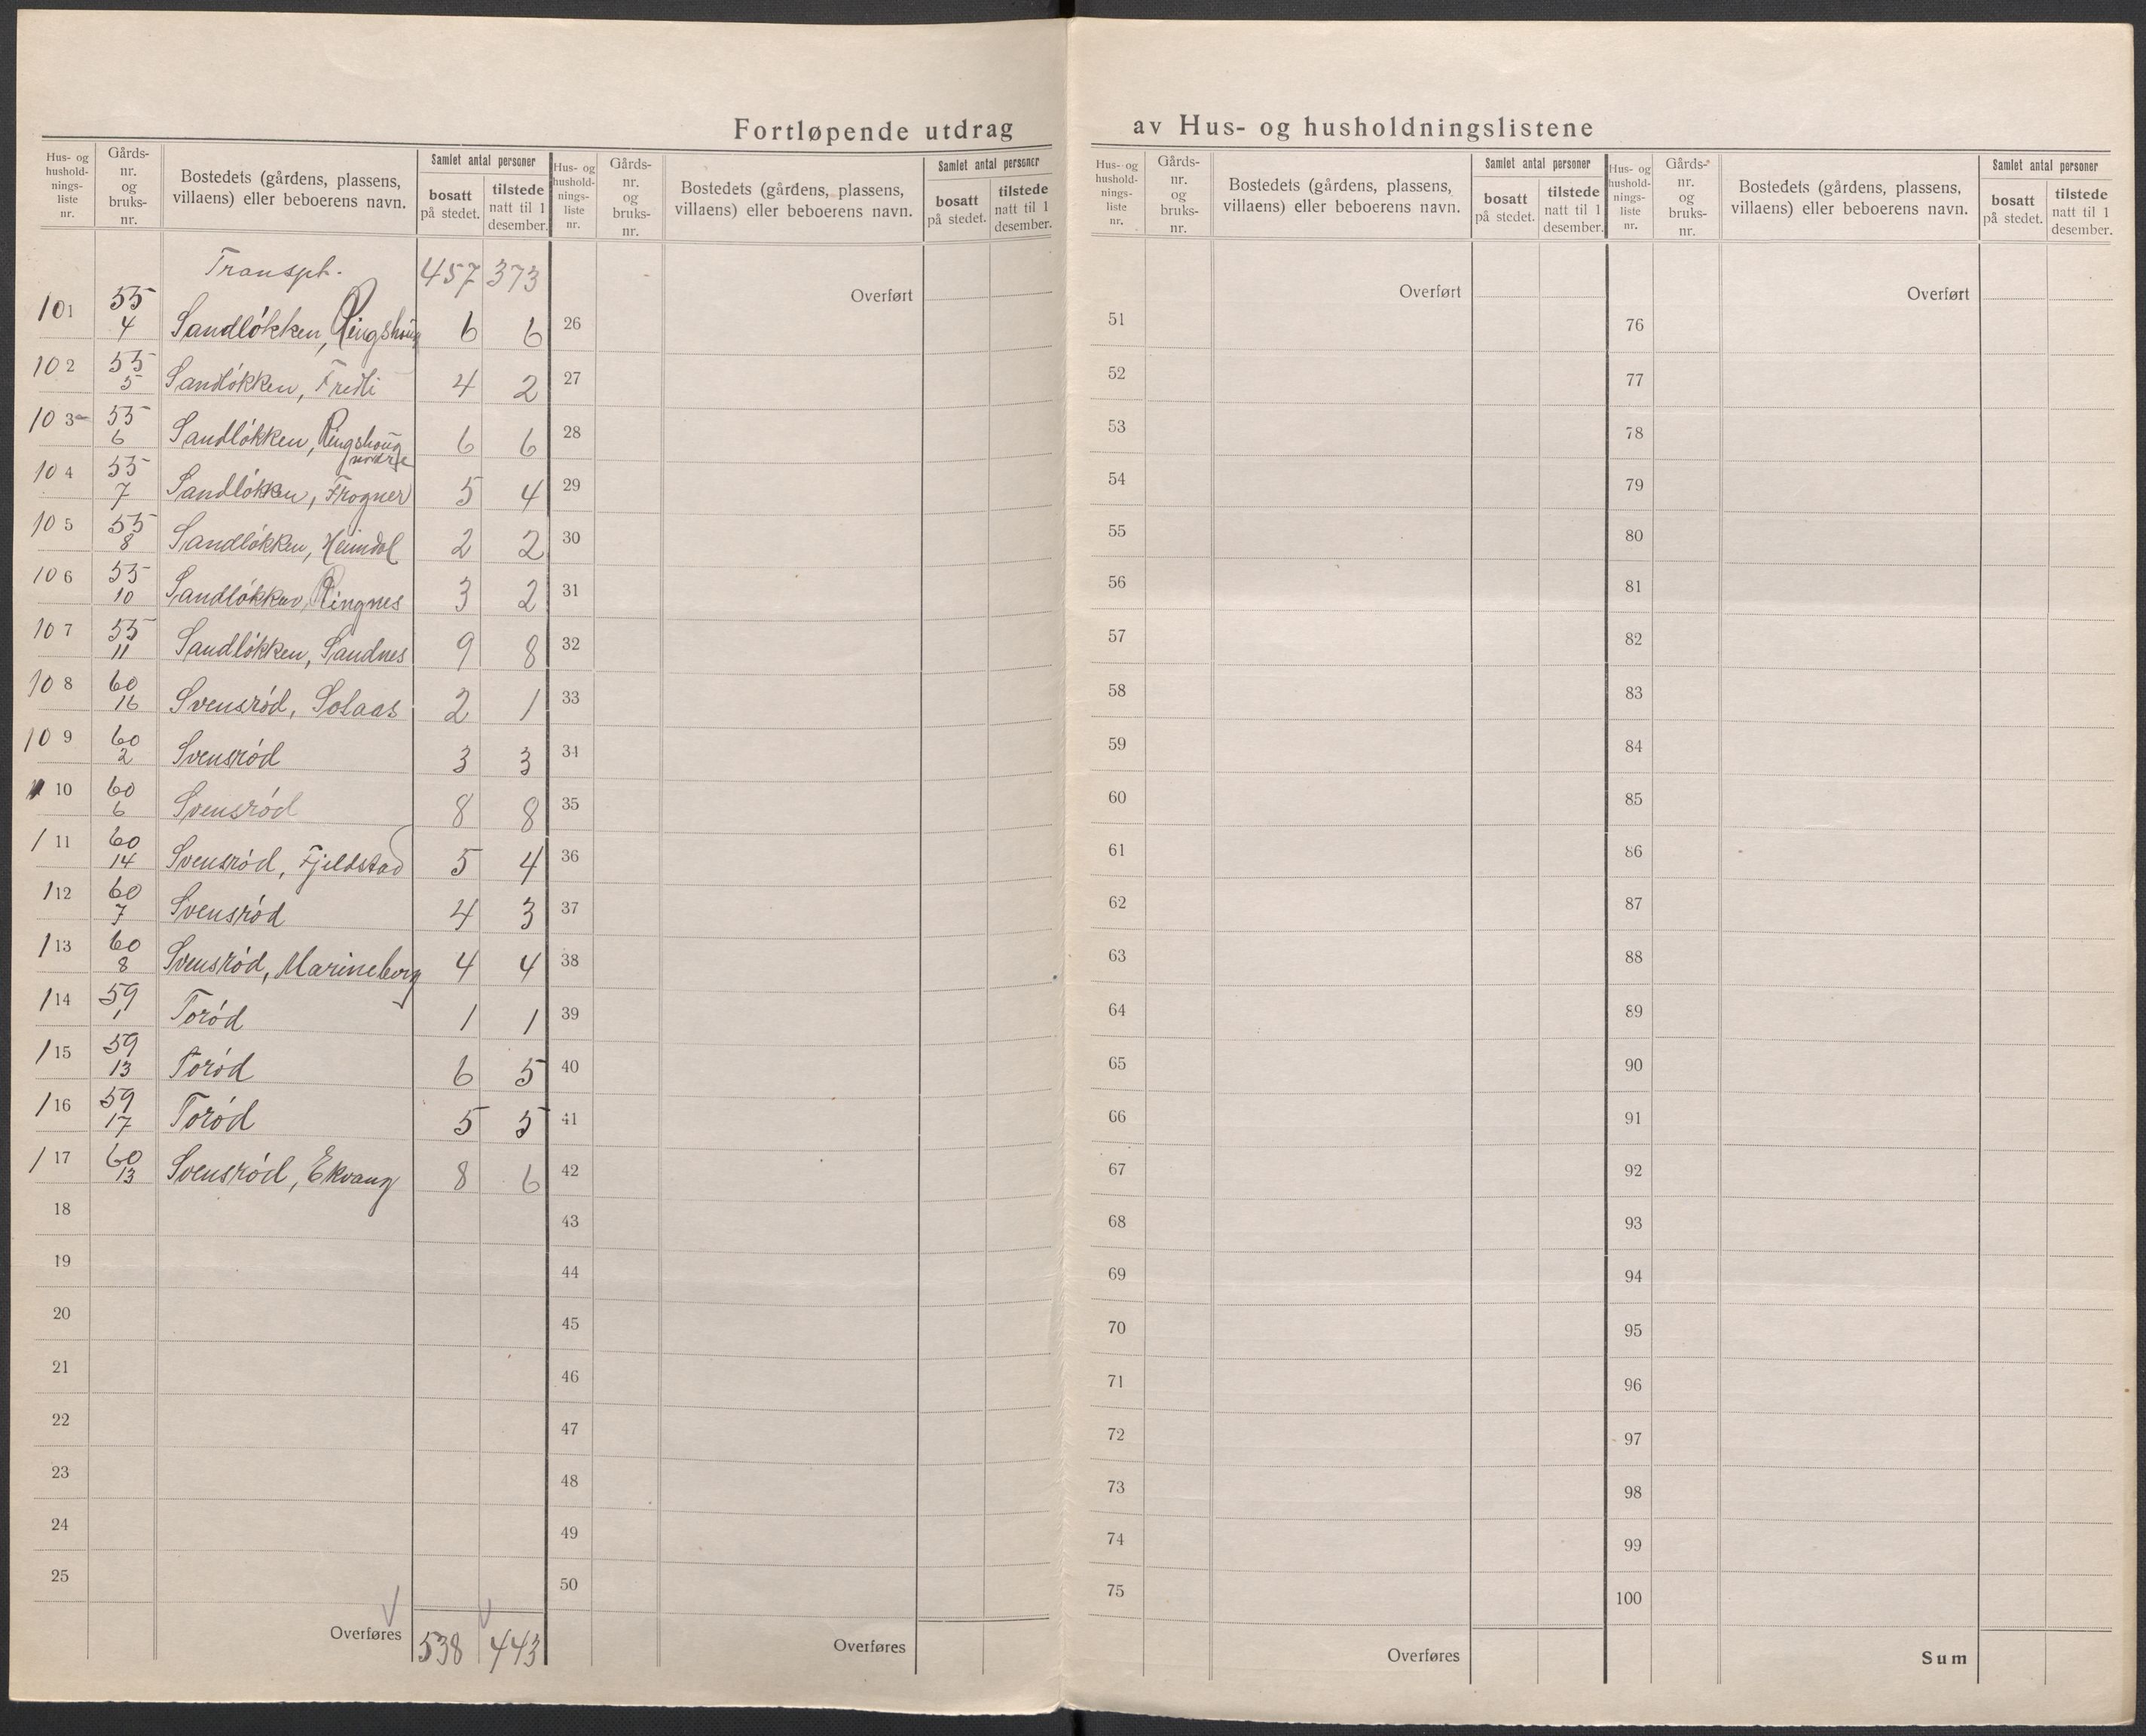 Fortløpende utdrag av Hus- og husholdningslistene
Hus- og hushold- nings- liste nr. | Gårds- nr. og bruks- nr. | Bostedets (gårdens, plassens, villaens) eller beboerens navn. | Samlet antal personer | bosatt på stedet. | tilstede natt til 1 desember.
Transpt. 457 373
101 55 4 Sandløkken, Ringshaug 6 6
102 55 5 Sandløkken, Fredli 4 2
103 55 6 Sandløkken, Ringshaug nordre 6 6
104 55 7 Sandløkken, Frogner 5 4
105 55 8 Sandløkken, Heimdal 2 2
106 55 10 Sandløkken, Ringnes 3 2
107 55 11 Sandløkken, Sandnes 9 8
108 60 16 Svensrød, Solaas 2 1
109 60 2 Svensrød 3 3
110 60 6 Svensrød 8 8
111 60 14 Svensrød, Fjeldstad 5 4
112 60 7 Svensrød 4 3
113 60 8 Svensrød, Marineborg 4 4
114 59 1 Torød 1 1
115 59 13 Torød 6 5
116 59 17 Torød 5 5
117 60 13 Svensrød, Ekvang 8 6
18
19
20
21
22
23
24
25
Overføres 538 443
Hus- og hushold- nings- liste nr. | Gårds- nr. og bruks- nr. | Bostedets (gårdens, plassens, villaens) eller beboerens navn. | Samlet antal personer | bosatt på stedet. | tilstede natt til 1 desember.
Overført
26
27
28
29
30
31
32
33
34
35
36
37
38
39
40
41
42
43
44
45
46
47
48
49
50
Overføres
Hus- og hushold- nings- liste nr. | Gårds- nr. og bruks- nr. | Bostedets (gårdens, plassens, villaens) eller beboerens navn. | Samlet antal personer | bosatt på stedet. | tilstede natt til 1 desember.
Overført
51
52
53
54
55
56
57
58
59
60
61
62
63
64
65
66
67
68
69
70
71
72
73
74
75
Overføres
Hus- og hushold- nings- liste nr. | Gårds- nr. og bruks- nr. | Bostedets (gårdens, plassens, villaens) eller beboerens navn. | Samlet antal personer | bosatt på stedet. | tilstede natt til 1 desember.
Overført
76
77
78
79
80
81
82
83
84
85
86
87
88
89
90
91
92
93
94
95
96
97
98
99
100
Sum